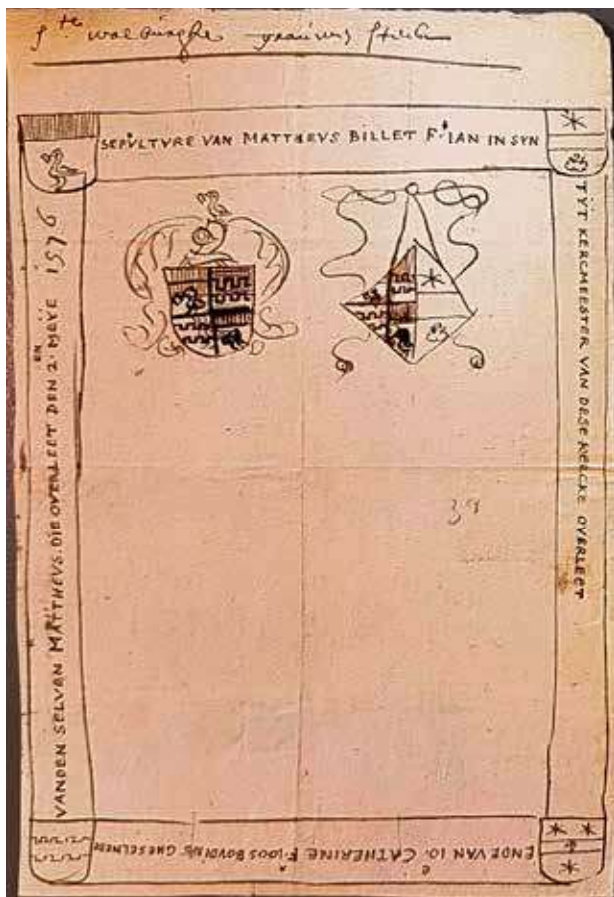 Ste walburghe
SEPVLTVRE VAN MATTHEVS BILLET Fs IAN IN SYN
TYT KERCMEESTER VAN DESE KERCKE OVERLEET
ENDE VAN IO. CATHERINE Fa IOOS BOVDINS
VANDEN SELVEN MATTHEVS. DIE OVERLEET DEN 2. MEYE 1576
EN
39